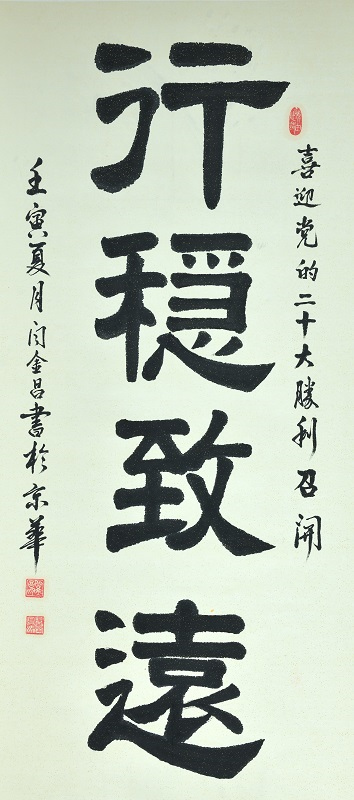 喜迎党的二十大勝利召開
行穩致遠
壬寅夏月闫金昌書於京華